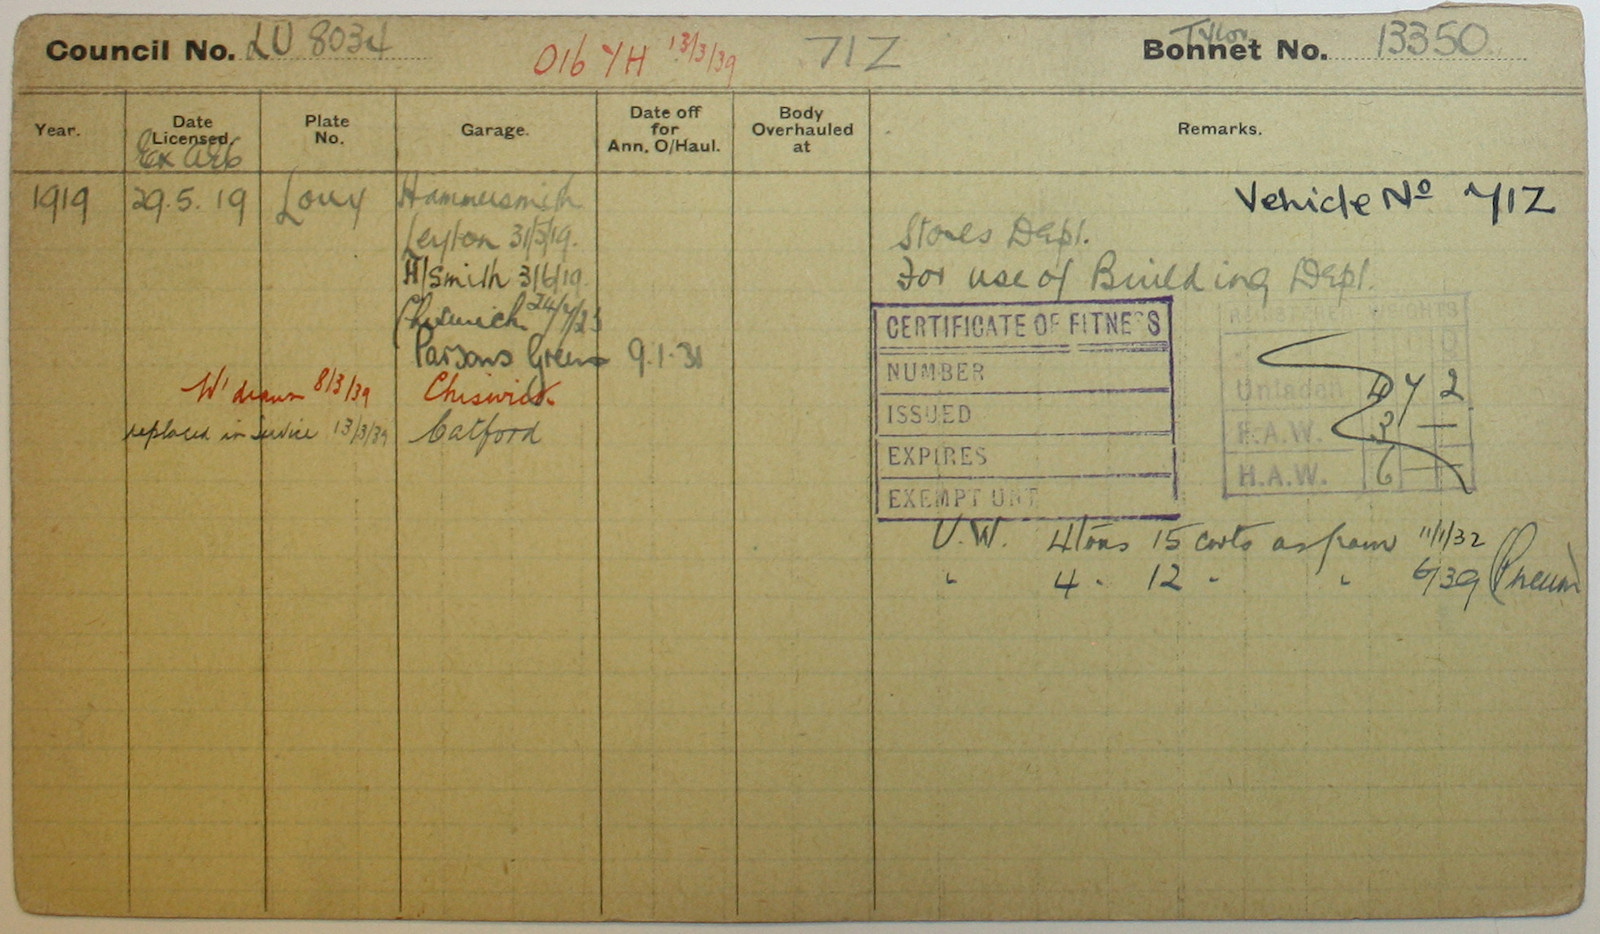 Council No. LU 8034
016 YH 13/3/39
71Z
Tylor
Bonnet No. 13350
Year.
Date Licensed.
Plate No.
Garage.
Date off for Ann. O/Haul.
Body Overhauled at
Remarks.
Ex
1919 29.5.19 Lorry Hammersmith
Vehicle No 71Z
Leyton 31/5/19.
Stores Dept.
H/Smith 3/6/19.
For use of Building Dept.
Chiswick
Parsons Green 9.1.31
W'drawn 8/3/39 Chiswick
replaced in service 13/3/39 Catford
CERTIFICATE OF FITNESS
NUMBER
ISSUED
EXPIRES
EXEMPT UNT
REGISTERED WEIGHTS
Unladen 4 7 2
F.A.W. 3 —
H.A.W. 6 — —
U.W. 4 tons 15 cwts as from 11/1/32
" 4 " 12 " " 6/39 (Pneum)